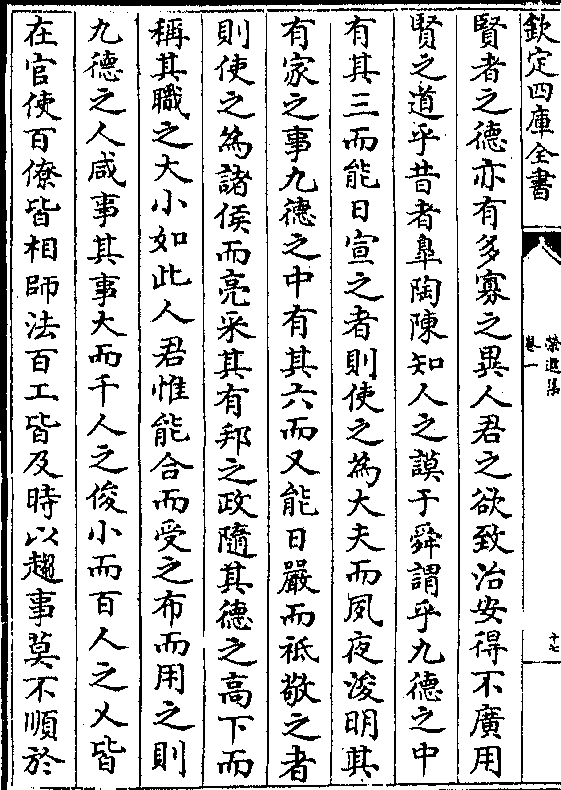 欽定四庫全書
榮進集
卷一
十七
賢者之德亦有多寡之異人君之欲致治安得不廣用
賢之道乎昔者臯陶陳知人之謨于舜謂乎九德之中
有其三而能日宣之者則使之為大夫而夙夜浚明其
有家之事九德之中有其六而又能日嚴而祗敬之者
則使之為諸侯而亮采其有邦之政隨其德之高下而
稱其職之大小如此人君惟能合而受之布而用之則
九德之人咸事其事大而千人之俊小而百人之乂皆
在官使百僚皆相師法百工皆及時以趨事莫不順於